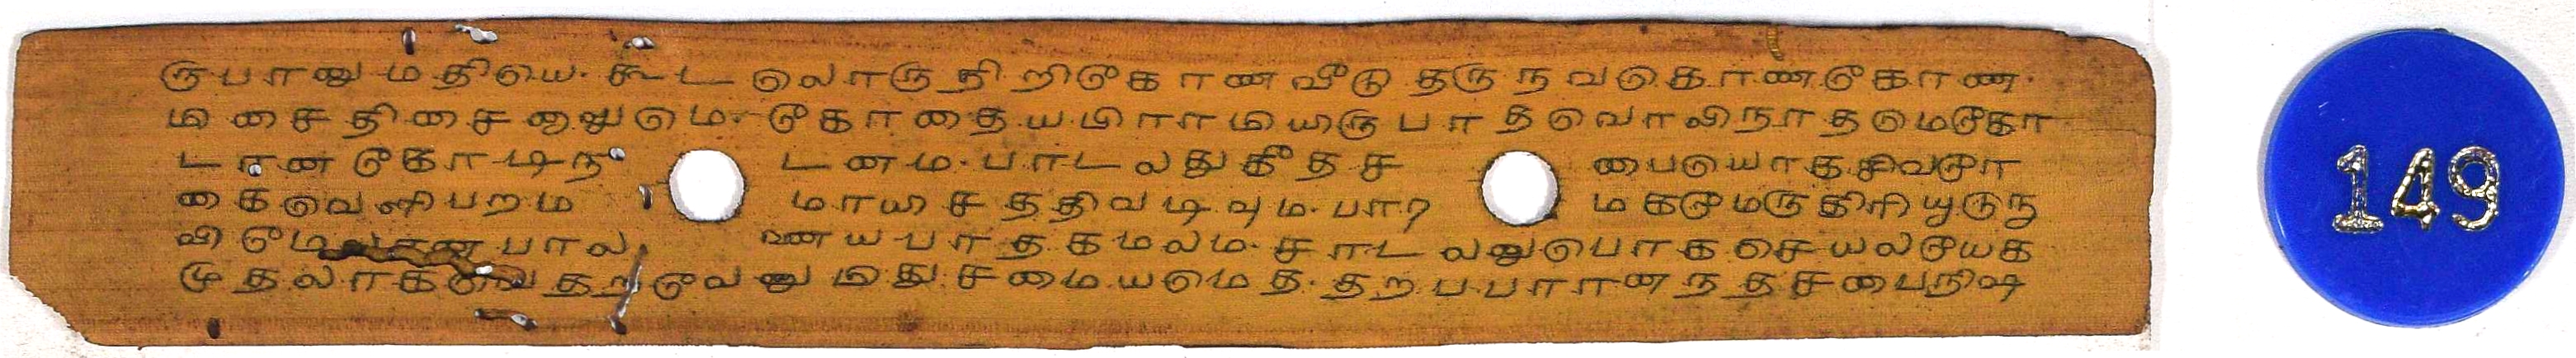 ருபானுமதியெ. கூடலொருநிறிகோணவீடு தருநவகொணகோண.
மிசைதிசைனுமெ. கோதையபிராமியிருபாதவொலிநாதமெகோ
டானகோடிந டனம. பாடலதுகீதச பையொகசிவமா
கைவெளிபறம மாயிசததிவடிவும. பார மகமெருகிரியூடுந
விமே பால ணயபாதகமலம. சாடலனுபொகசெயலயக
முதலாக தறவெனுமிதுசமையமெத. தறபபரானநதசபைநிஷ
149